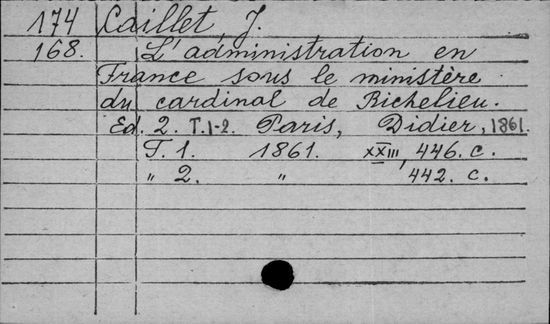 174 Caillet J.
168. L'administration en
France sous le ministère
du cardinal de Richelieu.
Ed. 2. T.1-2. Paris, Didier, 1861.
T. 1. 1861. XXIII, 446. c.
" 2. " 442. c.